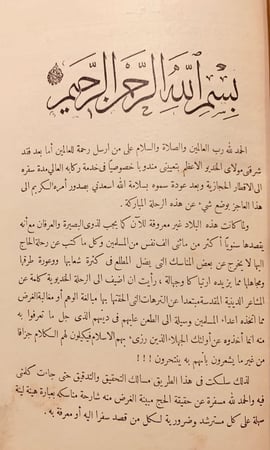 بسم الله الرحمن الرحيم
الحمد لله رب العالمين والصلاة والسلام على من ارسل رحمة للعالمين أما بعد فقد
شرفنى مولاى الخديو الاعظم بتعيينى مندوبا خصوصيا فى خدمة ركابه العالى مدة سفره
الى الاقطار الحجازية وبعد عودة سموه بسلامة الله اسعدنى بصدور أمره الكريم الى
هذا العاجز بوضع شىء عن هذه الرحلة المباركة .
ولما كانت هذه البلاد غير معروفة للآن كما يجب لذوى البصيرة والعرفان مع أنه
يقصدها سنويا أكثر من مائتى الف نفس من المسلمين وكل ما كتب عن رحلة الحاج
اليها لا يخرج عن بعض المناسك التى يضل المطلع فى كثرة شعابها ووعورة طرقها
ومجاهلها مما يزيده ارتباكا وجهالة ، رأيت ان اضيف الى الرحلة الخديوية كلمة عن
المشاعر الدينية المقدسة مبتعدا عن الترهات التى ألحقتها بها مبالغة الوهم أو مغالبة الغرض
مما اتخذه اعداء المسلمين وسيلة الى الطعن عليهم فى دينهم الذى جل ما تعرفوا به
منه انما أخذوه عن أولئك الجهلاء الذين رزىء بهم الاسلام فيكيلون لهم الكلام جزافا
من غير ما يشعرون بأنهم به يتجرون !!!
لذلك سلكت فى هذا الطريق مسالك التحقيق والتدقيق حتى جاءت كلمتى
فيه والحمد لله مسفرة عن حقيقة الحج مبينة الغرض منه شارحة مناسكه بعبارة هينة لينة
سهلة على كل مسترشد وضرورية لكل من قصد سفرا اليه أو معرفة به .